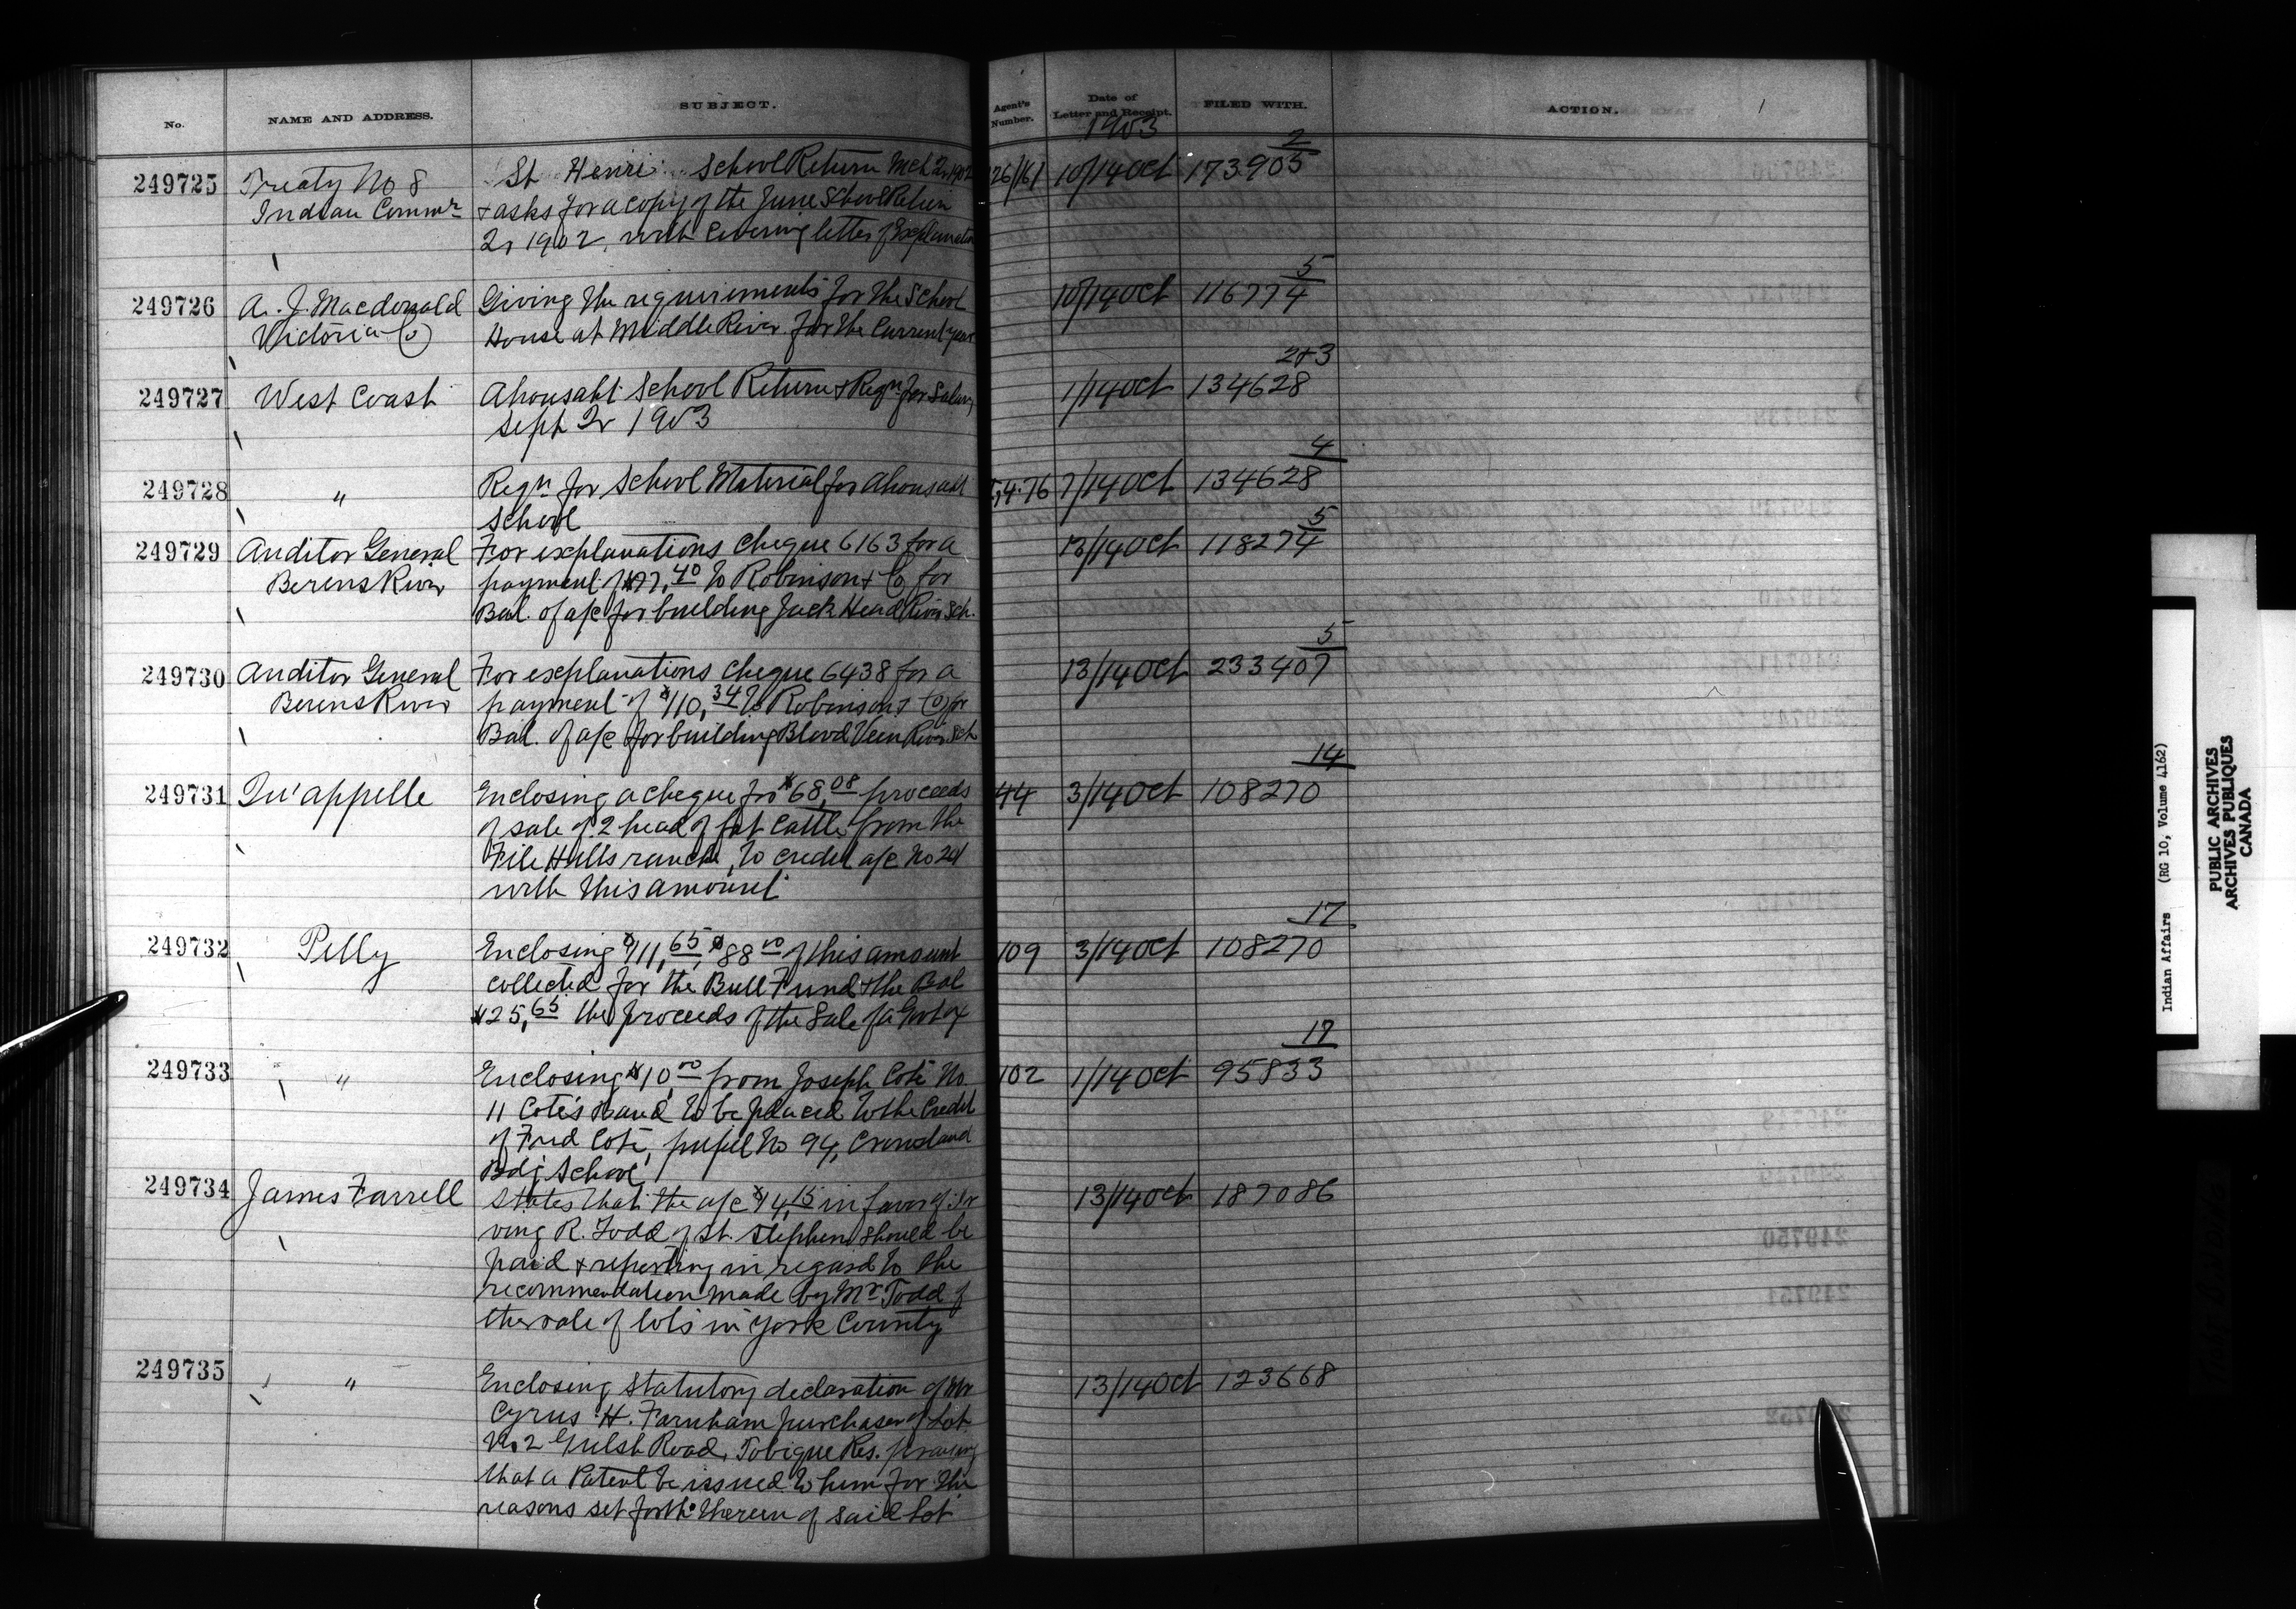 No. NAME AND ADDRESS. SUBJECT. Agent's Number. Date of Letter and Receipt. FILED WITH. ACTION.
1903
249725 Treaty No 8 St Henri School Return Mch 2r 1902 26/161 10/14 Oct 173905 2
Indian Commr & asks for a copy of the June School Return
2r 1902, with covering letter of Explanation
249726 A. J. Macdonald Giving the requirements for the School 10/14 Oct 116774 5
Victoria Co House at Middle River for the Current year
249727 West Coast Ahousaht School Return & Reqn for Salary 1/14 Oct 134628 2+3
Sept 2r 1903
249728 " Reqn for School Material for Ahousaht 4.76 7/14 Oct 134628 4
School
249729 Auditor General For explanations Cheque 6163 for a 13/14 Oct 118274 5
Berens River payment of 40 to Robinson & Co for
Bal. of a/c for building Jack Head River Sch.
249730 Auditor General For explanations Cheque 6438 for a 13/14 Oct 233407 5
Berens River payment of $110,34 to Robinson & Co for
Bal. of a/c for building Blood Vein River Sch
249731 Qu'appelle Enclosing a cheque for $68,08 proceeds 44 3/14 Oct 108270 14
of sale of 2 head of fat Cattle from the
File Hills ranch, to credit a/c No 241
with this amount
249732 Pelly Enclosing $ 65, $88 00 of this amount 109 3/14 Oct 108270 17
collected for the Bull Fund & the Bal
$25,65 the proceeds of the Sale of a Govt ox
249733 " Enclosing $10,00 from Joseph Coté No. 102 1/14 Oct 95833 19
11 Coté's Band, to be placed to the Credit
of Fred Coté, pupil No 94, Crowstand
Bdg School
249734 James Farrell States that the a/c $14,15 in favor of Ir 13/14 Oct 187086
ving R. Todd of St. Stephen should be
paid & reporting in regard to the
recommendation made by Mr Todd of
the sale of lots in York County
249735 " Enclosing Statutory declaration of Mr 13/14 Oct 123668
Cyrus H. Farnham purchaser of Lot
No 2 Gulch Road, Tobique Res. praying
that a Patent be issued to him for the
reasons set forth therein of said Lot
Indian Affairs (RG 10, Volume 4162)
PUBLIC ARCHIVES
ARCHIVES PUBLIQUES
CANADA